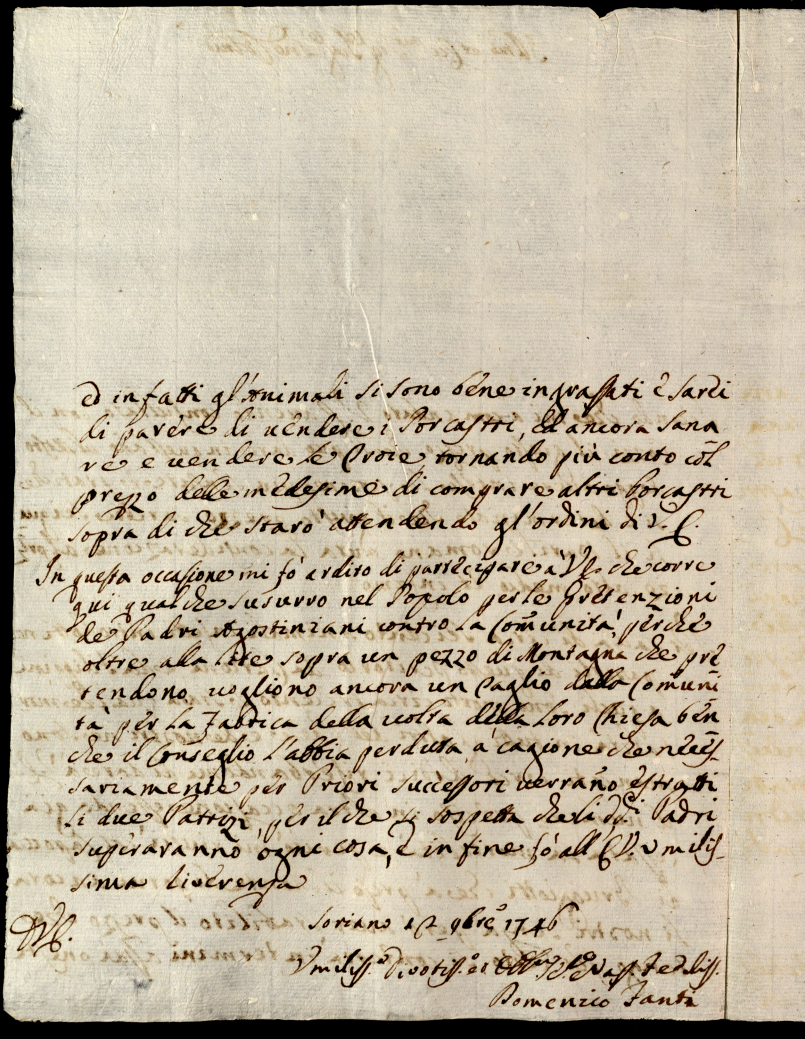 ed in fatti gl'Animali si sono bene ingrassati e sarei
di parere di vendere i Porcastri, ed ancora sana
re e vendere le Troie, tornando più conto col
prezzo delle medesime di comprare altri Porcastri
sopra di che starò attendendo gl'ordini di V. E.
In questa occasione mi fò ardito di partecipare à VE. che corre
qui qualche susurro nel Popolo per le pretenzioni
de Padri Agostiniani contro la Com̃unità, perche
oltre alla lite sopra un pezzo di Montagna che pre
tendono, vogliono ancora un Taglio dalla Com̃uni
tà per la Fabrica della volta della loro Chiesa ben
che il Conseglio l'abbia perduta, à cagione che neces-
sariamente per Priori successori verrano estratti
li due Patrizi, per il che si sospetta che li dd.i Padri
superaranno ogni cosa, e in fine fò all'EV. umilis-
sima riverenza
Soriano 12 9bre 1746
VE.
Umiliss.o Divotiss.o et Vass. Fedeliss.
Domenico Fanti